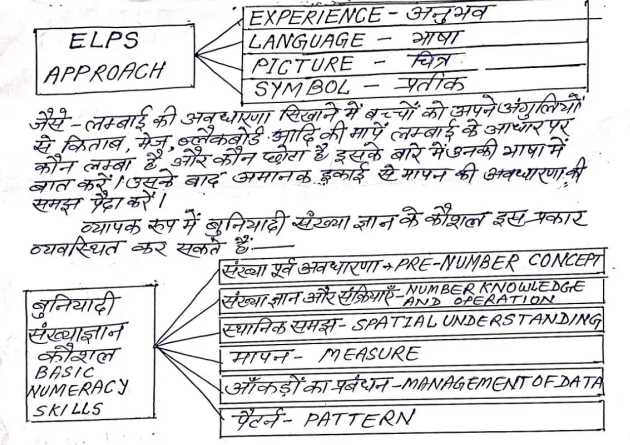 ELPS
APPROACH
EXPERIENCE - अनुभव
LANGUAGE - भाषा
PICTURE - चित्र
SYMBOL - प्रतीक
जैसे - लम्बाई की अवधारणा सिखाने में बच्चों को अपने अंगुलियों
से किताब, मेज, ब्लैकबोर्ड आदि की मापें लम्बाई के आधार पर
कौन लम्बा है और कौन छोटा है इसके बारे में उनकी भाषा में
बात करें। उसके बाद अमानक इकाई से मापन की अवधारणा की
समझ पैदा करें।
व्यापक रूप में बुनियादी संख्या ज्ञान के कौशल इस प्रकार
व्यवस्थित कर सकते हैं:—
बुनियादी
संख्याज्ञान
कौशल
BASIC
NUMERACY
SKILLS
संख्या पूर्व अवधारणा → PRE-NUMBER CONCEPT
संख्या ज्ञान और संक्रियाएँ - NUMBER KNOWLEDGE
AND OPERATION
स्थानिक समझ - SPATIAL UNDERSTANDING
मापन - MEASURE
आँकड़ों का प्रबंधन - MANAGEMENT OF DATA
पैटर्न - PATTERN